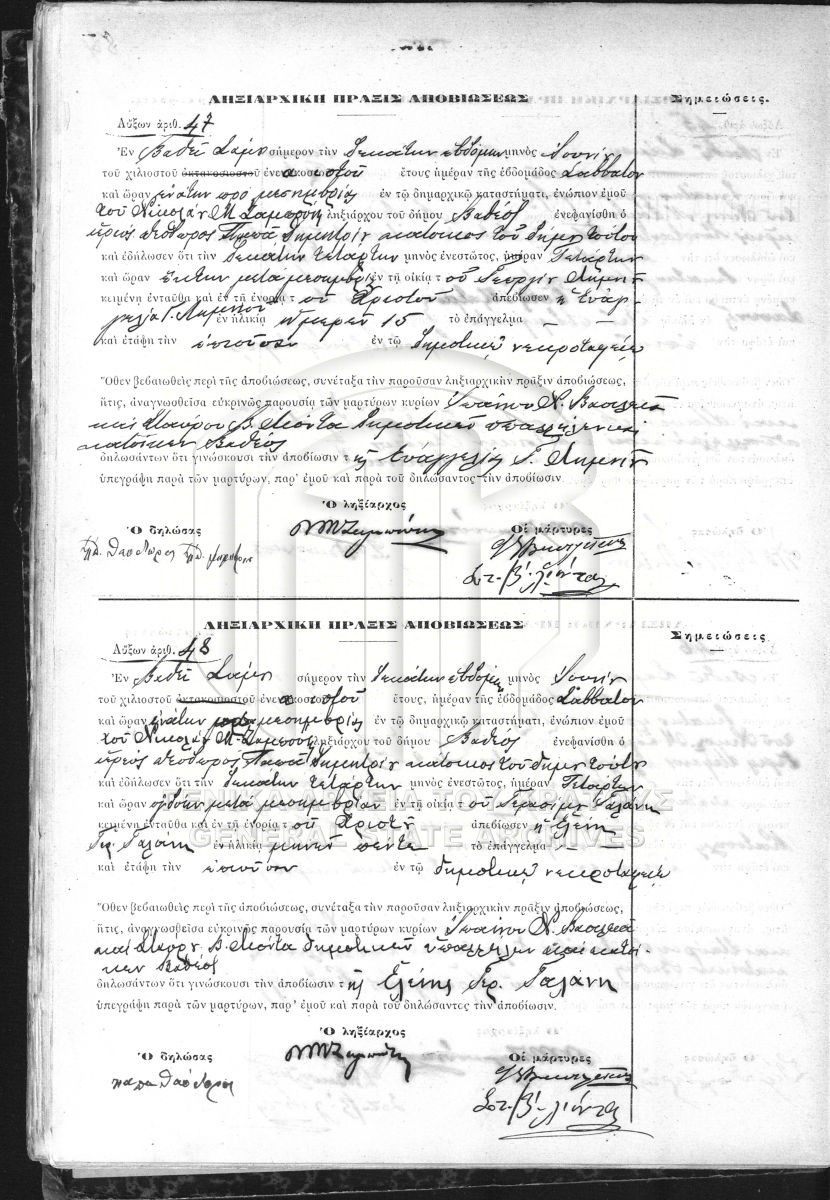 ΛΗΞΙΑΡΧΙΚΗ ΠΡΑΞΙΣ ΑΠΟΒΙΩΣΕΩΣ
Σημειώσεις.
Αὔξων ἀριθ. 47
Ἐν Βαθεῖ Σάμου σήμερον τὴν δεκάτην ἑβδόμην μηνὸς Ἰουνίου
τοῦ χιλιοστοῦ ὀκτακοσιοστοῦ ἐνε ἔτους ἡμέραν τῆς ἑβδομάδος Σάββατον
καὶ ὥραν ἐνάτην πρὸ μεσημβρίας ἐν τῷ δημαρχικῷ καταστήματι, ἐνώπιον ἐμοῦ
τοῦ Νικολάου Μ. ληξιάρχου τοῦ δήμου Βαθέος ἐνεφανίσθη ὁ
ἱερεὺς Θεόδωρος Παπᾶ Δημητρίου κάτοικος τοῦ δήμου τούτου
καὶ ἐδήλωσεν ὅτι τὴν δεκάτην τετάρτην μηνὸς ἐνεστῶτος, ἡμέραν Τετάρτην
καὶ ὥραν ἕκτην μετὰ μεσημβρίαν ἐν τῇ οἰκίᾳ τοῦ Γεωργίου
κειμένῃ ἐνταῦθα καὶ ἐν τῇ ἐνορίᾳ τοῦ Χριστοῦ ἀπεβίωσεν ἡ Εὐαγ-
γελία Γ. ἐν ἡλικίᾳ ἡμερῶν 15 τὸ ἐπάγγελμα — —
καὶ ἐτάφη τὴν ἐπιοῦσαν ἐν τῷ δημοτικῷ νεκροταφείῳ
Ὅθεν βεβαιωθεὶς περὶ τῆς ἀποβιώσεως, συνέταξα τὴν παροῦσαν ληξιαρχικὴν πρᾶξιν ἀποβιώσεως,
ἥτις, ἀναγνωσθεῖσα εὐκρινῶς παρουσίᾳ τῶν μαρτύρων κυρίων Ν.
καὶ Σταύρου Β. Λιόντα δημοτικῶν ὑπαλλήλων καὶ
κατοίκων Βαθέος
δηλωσάντων ὅτι γινώσκουσι τὴν ἀποβίωσιν τῆς Εὐαγγελίας Γ.
ὑπεγράφη παρὰ τῶν μαρτύρων, παρ' ἐμοῦ καὶ παρὰ τοῦ δηλώσαντος τὴν ἀποβίωσιν
Ὁ ληξίαρχος
Ὁ δηλώσας
Οἱ μάρτυρες
ΛΗΞΙΑΡΧΙΚΗ ΠΡΑΞΙΣ ΑΠΟΒΙΩΣΕΩΣ
Σημειώσεις
Αὔξων ἀριθ. 48
Ἐν Βαθεῖ Σάμου σήμερον τὴν δεκάτην ἑβδόμην μηνὸς Ἰουνίου
τοῦ χιλιοστοῦ ὀκτακοσιοστοῦ ἐνε ἔτους, ἡμέραν τῆς ἑβδομάδος Σάββατον
καὶ ὥραν ἐνάτην πρὸ μεσημβρίας ἐν τῷ δημαρχικῷ καταστήματι, ἐνώπιον ἐμοῦ
τοῦ Νικολάου Μ. ληξιάρχου τοῦ δήμου Βαθέος ἐνεφανίσθη ὁ
ἱερεὺς Θεόδωρος Παπᾶ Δημητρίου κάτοικος τοῦ δήμου τούτου
καὶ ἐδήλωσεν ὅτι τὴν δεκάτην τετάρτην μηνὸς ἐνεστῶτος, ἡμέραν Τετάρτην
καὶ ὥραν ὀγδόην μετὰ μεσημβρίαν ἐν τῇ οἰκίᾳ τοῦ Γερασίμου Γαλάνη
ΓΕΝΙΚΑ ΑΡΧΕΙΑ ΤΟΥ ΚΡΑΤΟΥΣ
κειμένῃ ἐνταῦθα καὶ ἐν τῇ ἐνορίᾳ τοῦ Χριστοῦ ἀπεβίωσεν ἡ Ἑλένη
GENERAL STATE ARCHIVES
Γερ. Γαλάνη ἐν ἡλικίᾳ μηνῶν πέντε τὸ ἐπάγγελμα — —
καὶ ἐτάφη τὴν ἐπιοῦσαν ἐν τῷ δημοτικῷ νεκροταφείῳ
Ὅθεν βεβαιωθεὶς περὶ τῆς ἀποβιώσεως, συνέταξα τὴν παροῦσαν ληξιαρχικὴν πρᾶξιν ἀποβιώσεως,
ἥτις, ἀναγνωσθεῖσα εὐκρινῶς παρουσίᾳ τῶν μαρτύρων κυρίων Ν.
καὶ Σταύρου Β. Λιόντα δημοτικῶν ὑπαλλήλων καὶ κατοί-
κων Βαθέος
δηλωσάντων ὅτι γινώσκουσι τὴν ἀποβίωσιν τῆς Ἑλένης Γερ. Γαλάνη
ὑπεγράφη παρὰ τῶν μαρτύρων, παρ' ἐμοῦ καὶ παρὰ τοῦ δηλώσαντος τὴν ἀποβίωσιν.
Ὁ ληξίαρχος
Ὁ δηλώσας
Οἱ μάρτυρες
παπα Θεόδωρος